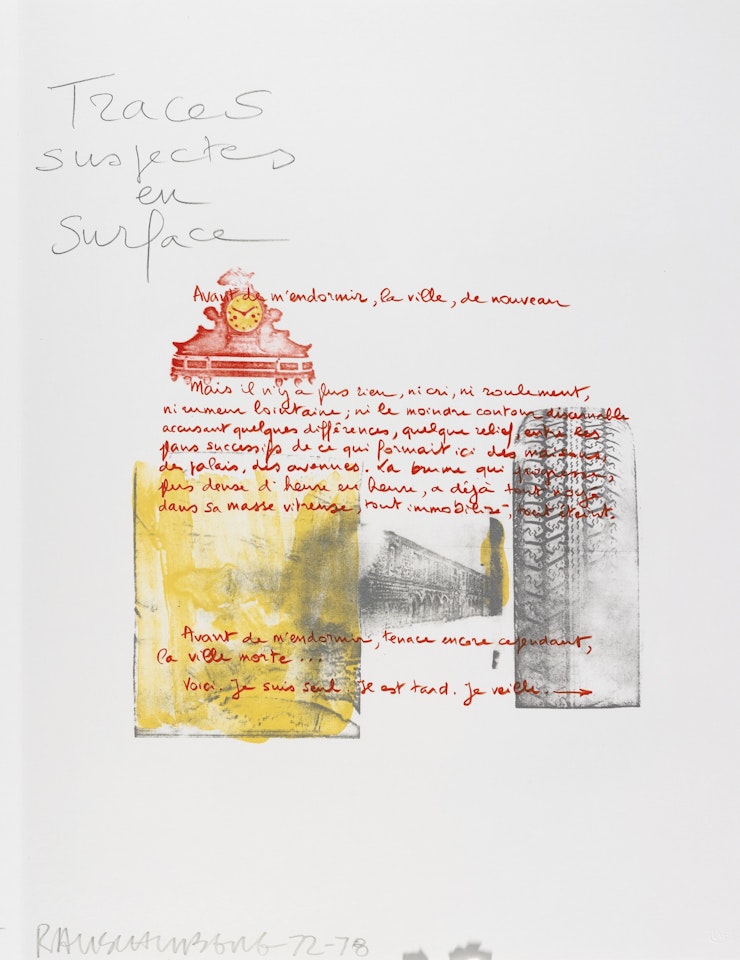 Traces
suspectes
en
Surface
Avant de m'endormir, la ville, de nouveau
Mais il n'y a plus rien, ni cri, ni roulement,
ni rumeur lointaine; ni le moindre contour discernable
accusant quelques différences, quelque relief, entre les
pans successifs de ce qui formait ici des maisons,
des palais, des avenues. La brume qui progresse,
plus dense d'heure en heure, a déjà tout noyé
dans sa masse vitreuse, tout immobilisé, tout éteint.
Avant de m'endormir, tenace encore cependant,
la ville morte...
Voici. Je suis seul. Il est tard. Je veille. →
RAUSCHENBERG 72-78